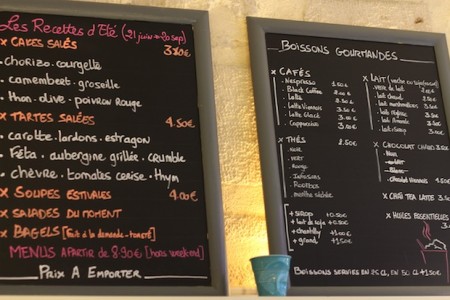 Les Recettes d'Eté (21 juin → 20 sep)
x CAKES SALÉS 3,80€
. chorizo. courgette
. camembert. groseille
. thon. olive. poivron rouge
x TARTES SALÉES 4.50€
. carotte. lardons. estragon
. Féta. aubergine grillée. crumble
. chèvre. tomates cerise. thym
x SOUPES ESTIVALES 4.00€
x SALADES DU MOMENT
x BAGELS [fait à la demande-toasté]
MENUS A PARTIR DE 8.90€ [hors week-end]
PRIX A EMPORTER
BOISSONS GOURMANDES
x CAFÉS
. Nespresso 1.50€
. Black Coffee 2.00€
. Latte
. Latte Viennois 3.50€
. Latte Glacé 3.00€
. Cappuccino 3.00€
x THÉS 2.50€
. noir
. vert
. Rouge
. Infusions
. Rooibos
. menthe
+ sirop +0.50€
+ lait de soja +0.50€
+ chantilly +1.00€
+ grand +1.50€
x LAIT
. verre de lait 2.00€
. lait chaud
. lait marshmallows
. lait
. lait
. lait+sirop 3.00€
x CHOCOLAT CHAUD 3.50€
. Noir
. Chocolat Viennois 4.50€
x CHAÏ TEA LATTE 3.50€
x HUILES ESSENTIELLES
BOISSONS SERVIES EN 25 CL, EN 50 CL +1.50€